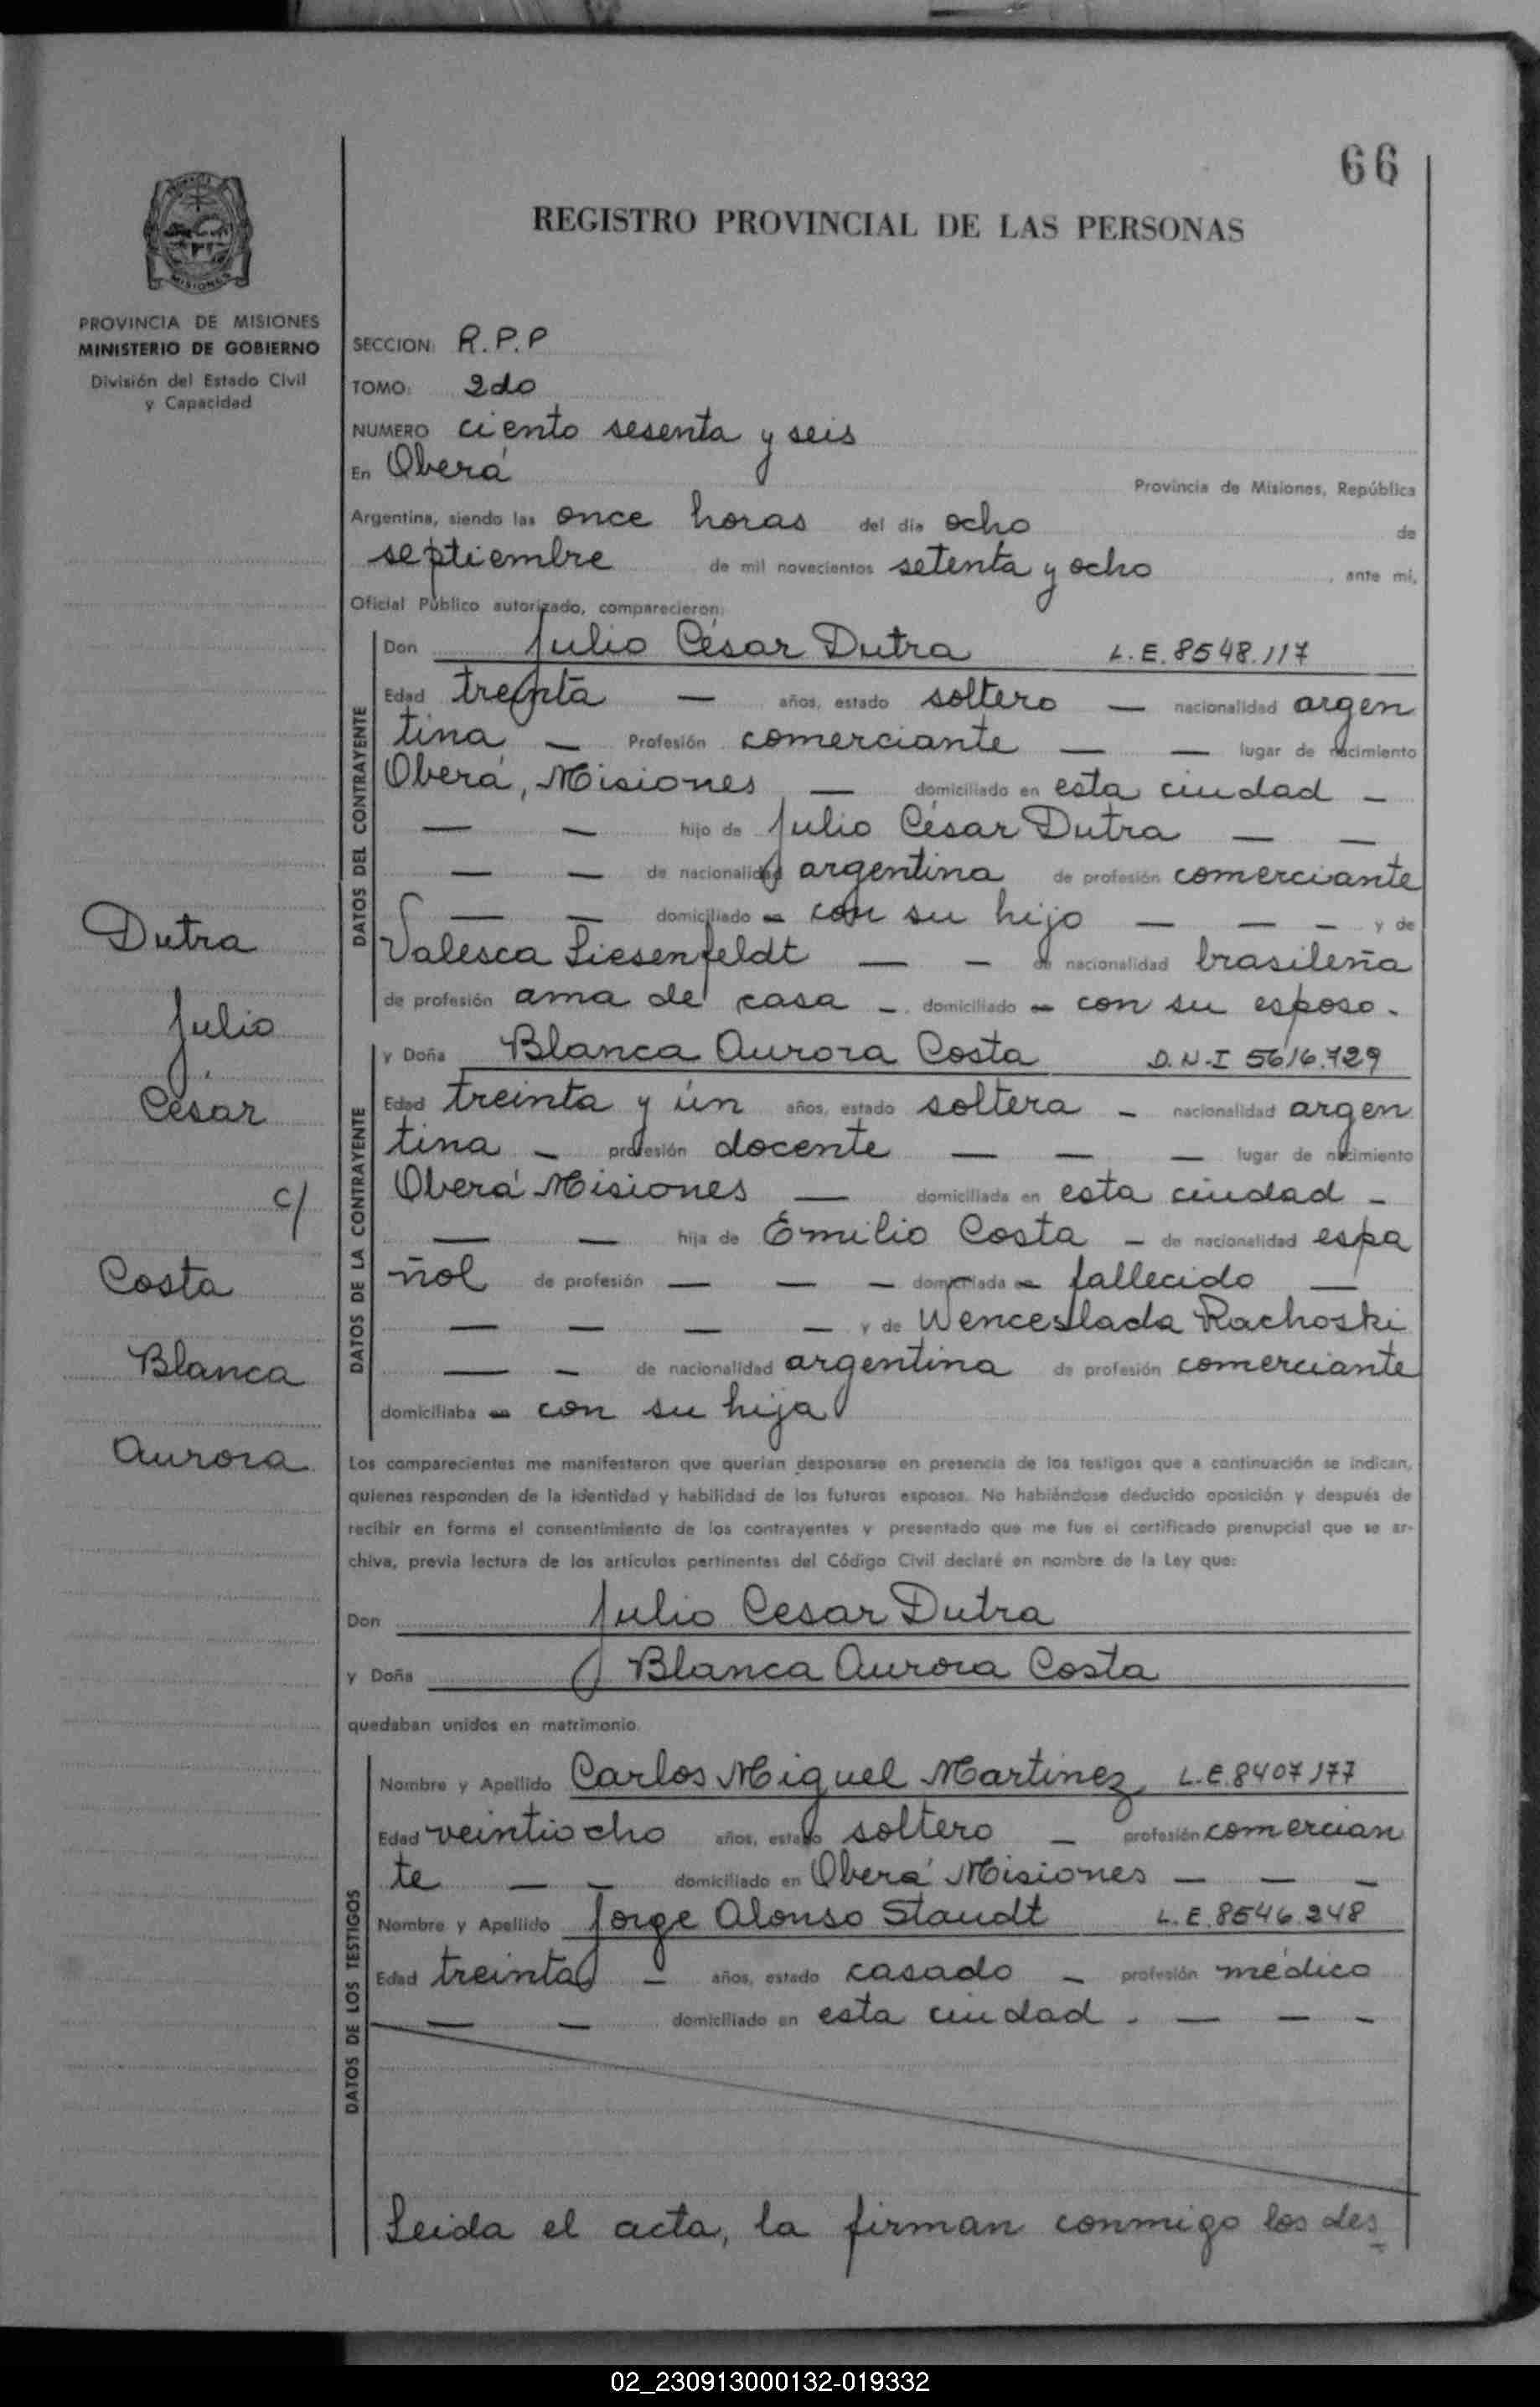 66
REGISTRO PROVINCIAL DE LAS PERSONAS
MISIONES
PROVINCIA DE MISIONES
MINISTERIO DE GOBIERNO
División del Estado Civil
y Capacidad
Dutra
Julio
César
c/
Costa
Blanca
Aurora
SECCION: R.P.P
TOMO: 2do
NUMERO ciento sesenta y seis
En Oberá Provincia de Misiones, República
Argentina, siendo las once horas del día ocho de
septiembre de mil novecientos setenta y ocho, ante mi,
Oficial Público autorizado, comparecieron:
DATOS DEL CONTRAYENTE
Don Julio César Dutra L.E. 8548.117
Edad treinta — años, estado soltero — nacionalidad argen
tina — Profesión comerciante — — lugar de nacimiento
Oberá, Misiones — domiciliado en esta ciudad —
— — hijo de Julio César Dutra — —
— — de nacionalidad argentina de profesión comerciante
— — domiciliado con su hijo — — — y de
Valesca Liesenfeldt — — de nacionalidad brasileña
de profesión ama de casa — domiciliado con su esposo.
DATOS DE LA CONTRAYENTE
y Doña Blanca Aurora Costa D.N.I 5616.729
Edad treinta y ún años, estado soltera — nacionalidad argen
tina — profesión docente — — — lugar de nacimiento
Oberá Misiones — domiciliada en esta ciudad —
— — hija de Emilio Costa — de nacionalidad espa
ñol de profesión — — — domiciliada fallecido —
— — — — y de Wenceslada Rachoski
— — de nacionalidad argentina de profesión comerciante
domiciliaba con su hija
Los comparecientes me manifestaron que querían desposarse en presencia de los testigos que a continuación se indican,
quienes responden de la identidad y habilidad de los futuros esposos. No habiéndose deducido oposición y después de
recibir en forma el consentimiento de los contrayentes y presentado que me fue el certificado prenupcial que se ar-
chiva, previa lectura de los artículos pertinentes del Código Civil declaré en nombre de la Ley que:
Don Julio Cesar Dutra
y Doña Blanca Aurora Costa
quedaban unidos en matrimonio.
DATOS DE LOS TESTIGOS
Nombre y Apellido Carlos Miguel Martinez L.E. 8407177
Edad veintiocho años, estado soltero — profesión comercian
te — — domiciliado en Oberá Misiones — — —
Nombre y Apellido Jorge Alonso Staudt L.E. 8546.248
Edad treinta — años, estado casado — profesión médico
— — domiciliado en esta ciudad. — — —
Leida el acta, la firman conmigo los des
02_230913000132-019332